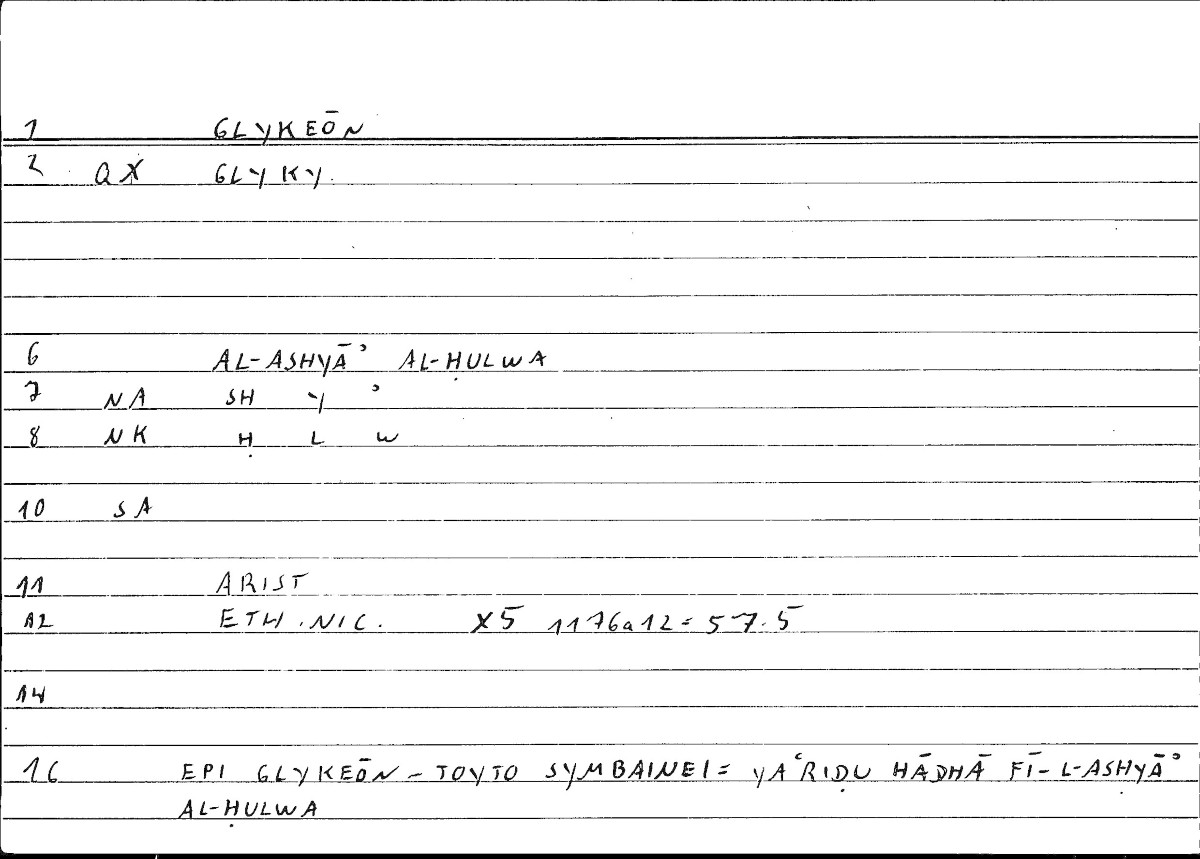 1 GLYKEŌN
2 QX GLYKY.
6 AL-ASHYĀʾ AL-ḤULWA
7 NA SH Y ʾ
8 NK Ḥ L W
10 SA
11 ARIST
12 ETH. NIC. X5 1176a12 = 57.5
14
16 EPI GLYKEŌN - TOYTO SYMBAINEI = YAʿRIḌU HĀDHĀ FĪ-L-ASHYĀʾ
AL-ḤULWA